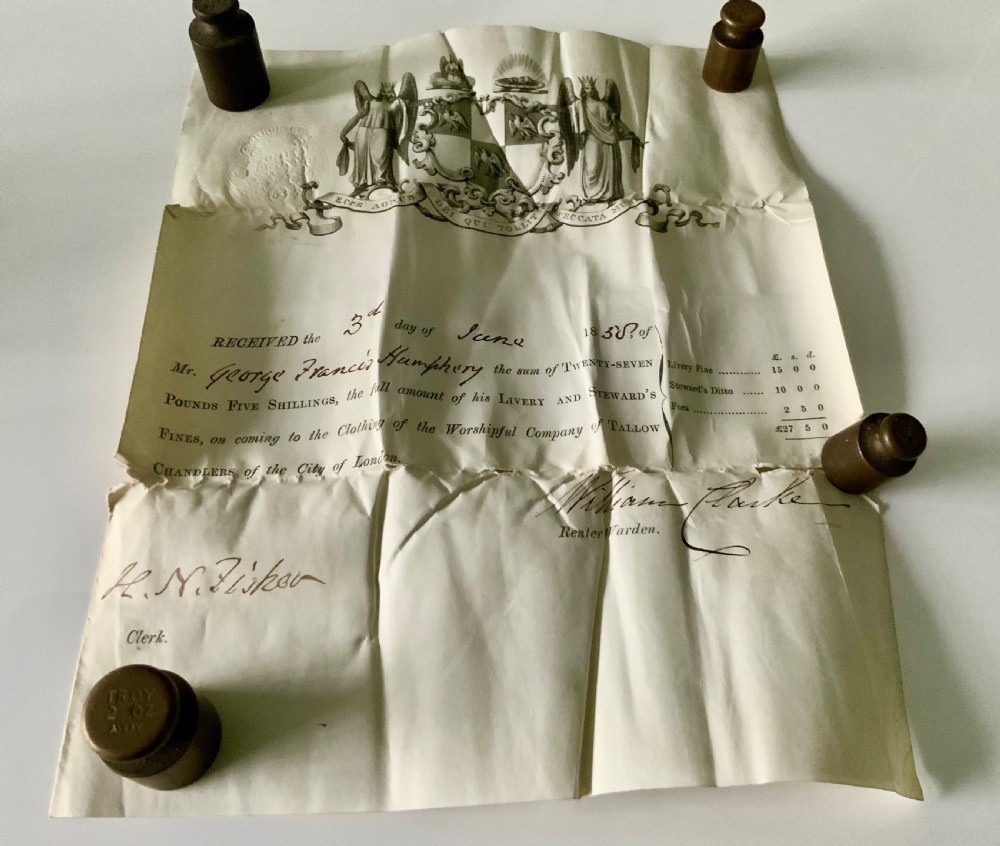 ECCE AGNUS DEI QUI TOLLIT PECCATA
RECEIVED the 3d day of June 1858, of
Mr. George Francis Humphery the sum of TWENTY-SEVEN
POUNDS FIVE SHILLINGS, the full amount of his LIVERY AND STEWARD'S
FINES, on coming to the Clothing of the Worshipful Company of TALLOW
CHANDLERS of the City of London.
£. s. d.
Livery Fine ........... 15 0 0
Steward's Ditto ...... 10 0 0
Fees ................... 2 5 0
£27 5 0
William Clarke
Renter Warden.
H. N. Fisher
Clerk.
TROY
2 OZ
AVERY